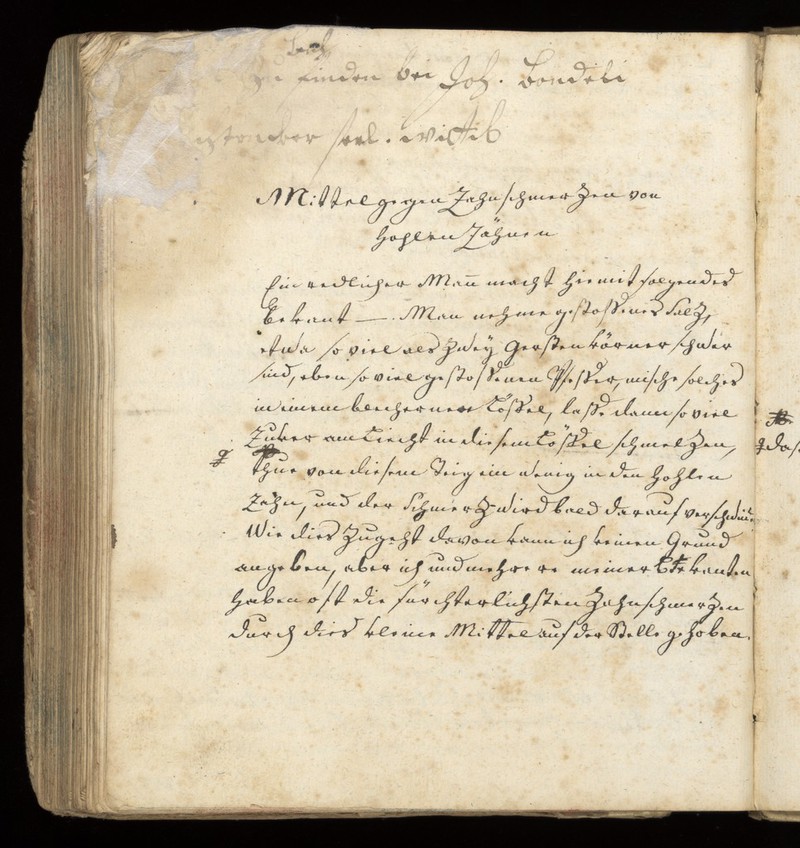 zu finden bei Joh. Bondeli
seel. Wittib
Mittel gegen Zahnschmerzen von
hohlen Zähnen
Ein redlicher Mañ macht hiemit folgendes
bekant — . Man nehme gestoßenes Salz,
etwa so viel als zwey Gerstenkörner schwer
sind, eben so viel gestoßenen Pfeffer, mische solches
in einem blechernen Löffel, lasse dann so viel
Zuker am Liecht in diesem Löffel schmelzen,
Thue von diesem Teig ein wenig in den hohlen
Zahn, und der Schmerz wird bald darauf verschwinden
Wie dies zugeht davon kann ich keinen Grund
angeben, aber ich und mehrere meiner Bekanten
haben oft die fürchterlichsten Zahnschmerzen
durch dies kleine Mittel auf der Stelle gehoben.